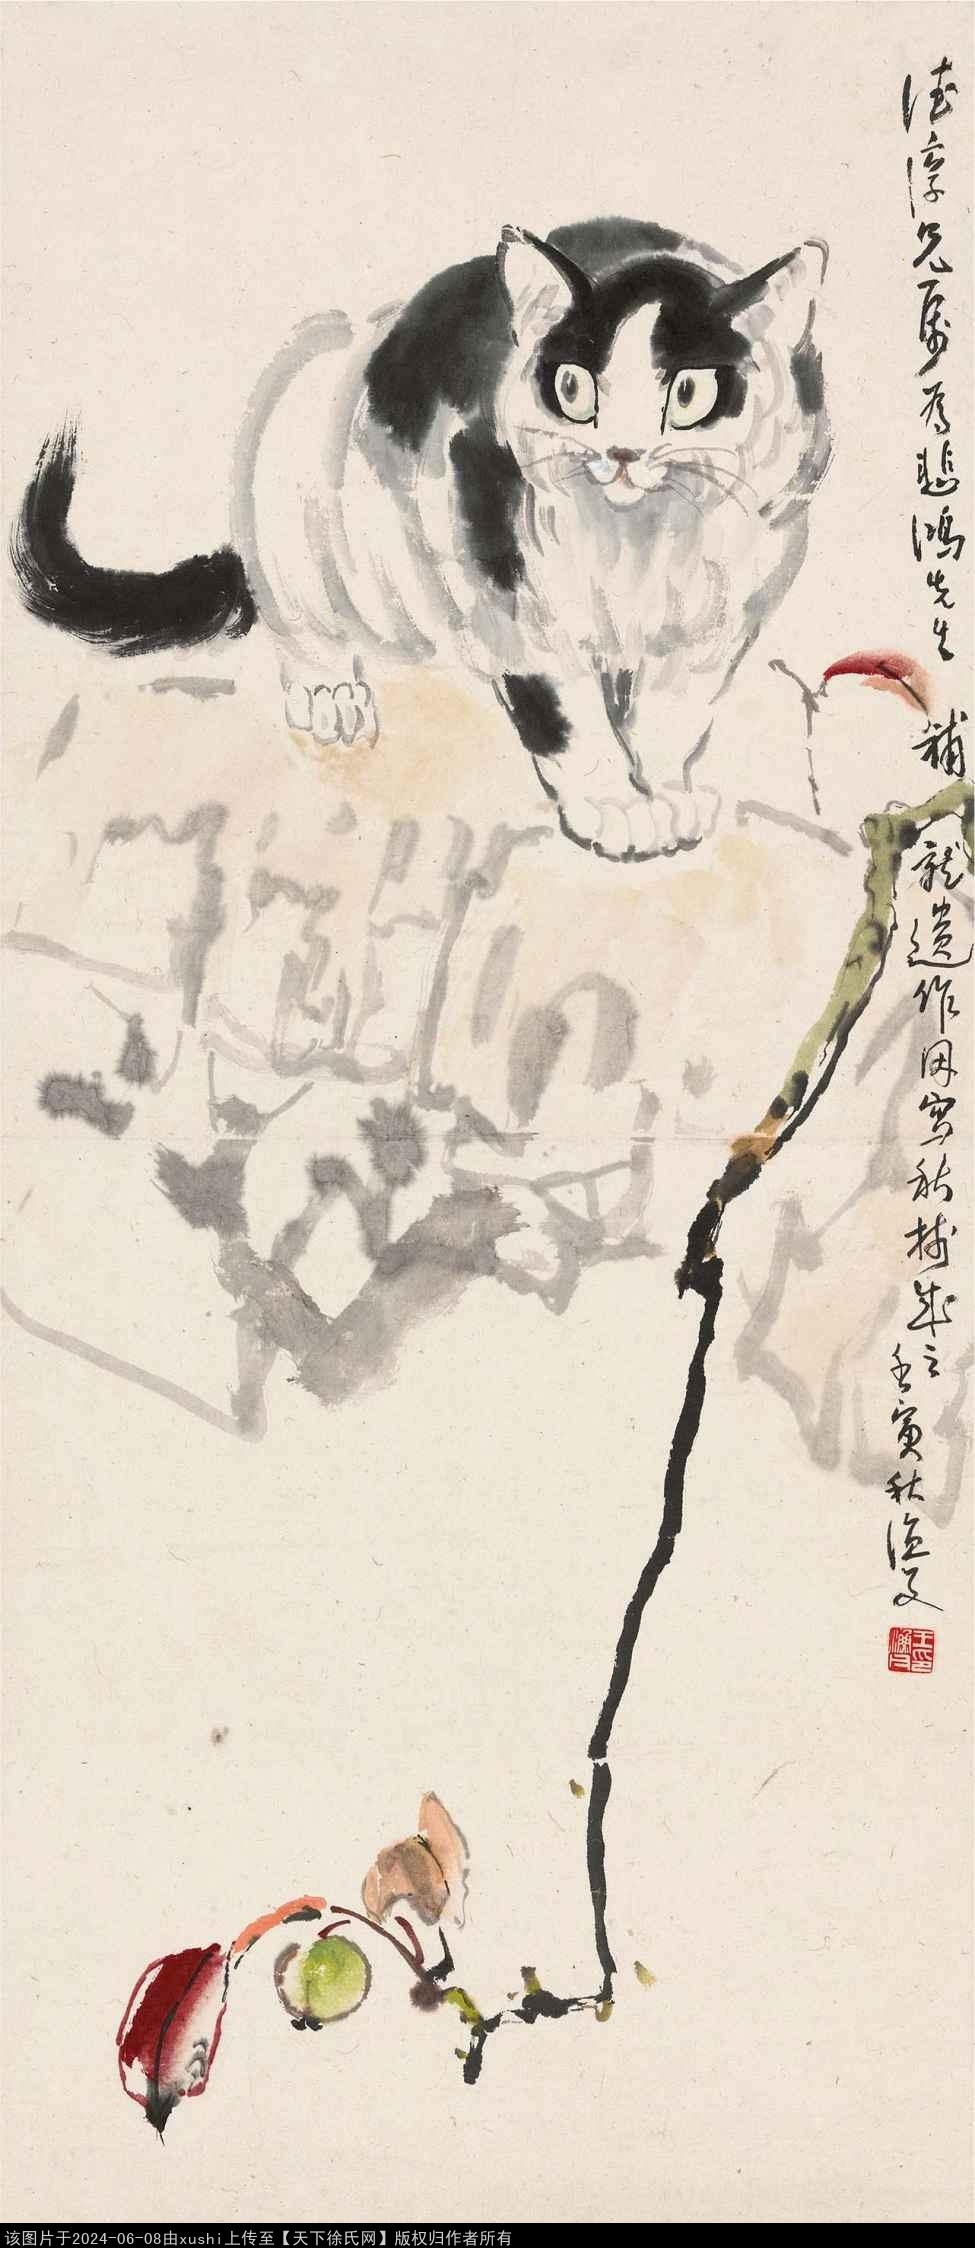 德淳兄属为悲鸿先生补
就遗作因写秋树成之
壬寅秋渔父
该图片于2024-06-08由xushi上传至【天下徐氏网】版权归作者所有